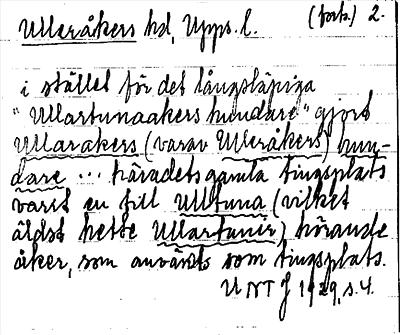 Ulleråkers hd, Upps. l. (forts.) 2.
i stället för det långsläpiga
"Ullartunaakers hundare" gjort
Ullarakers (varav Ulleråkers) hun-
dare ... häradets gamla tingsplats
varit en till Ulltuna (vilket
äldst hette Ullartunir) hörande
åker, som använts som tingsplats.
UNT J 1929, s. 4.